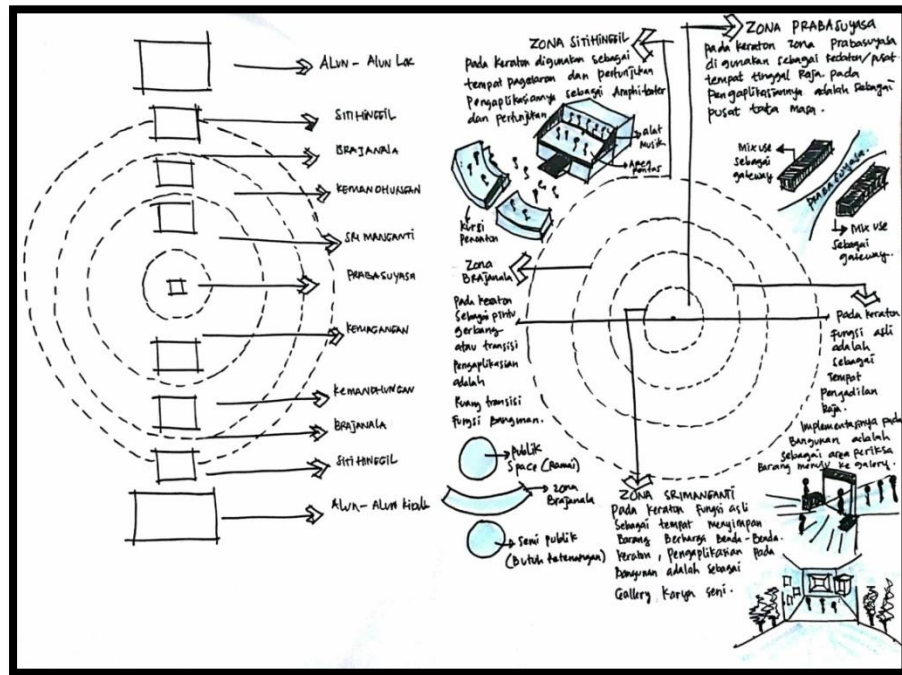 ALUN - ALUN LOR
SITIHINGGIL
BRAJANALA
KEMANDHUNGAN
SRI MANGANTI
PRABASUYASA
KEMAGANGAN
KEMANDHUNGAN
BRAJANALA
SITIHINGGIL
ALUN - ALUN KIDUL
ZONA SITIHINGGIL
pada keraton digunakan sebagai
tempat pagelaran dan pertunjukan
Pengaplikasiannya sebagai Amphiteater
dan pertunjukan
alat
Musik
Area
pentas
Kursi
Penonton
ZONA PRABASUYASA
pada keraton zona Prabasuyasa
di gunakan sebagai kedaton/pusat
tempat tinggal Raja. pada
pengaplikasiannya adalah sebagai
pusat tata masa.
Mix use
sebagai
gateway
PRABASUYASA
Mix use
sebagai
gateway.
Zona
BRAJANALA
Pada keraton
Sebagai pintu
gerbang
atau transisi
Pengaplikasian
adalah
Ruang transisi
Fungsi Bangunan.
publik
Space (Ramai)
Zona
Brajanala
Semi publik
(Butuh ketenangan)
Pada keraton
Fungsi asli
adalah
sebagai
Tempat
Pengadilan
Raja.
Implementasinya pada
Bangunan adalah
Sebagai area periksa
Barang menuju ke galery.
ZONA SRIMANGANTI
Pada keraton fungsi asli
Sebagai tempat menyimpan
Barang Berharga Benda-Benda.
keraton, Pengaplikasian pada
Bangunan adalah sebagai
Gallery karya seni.